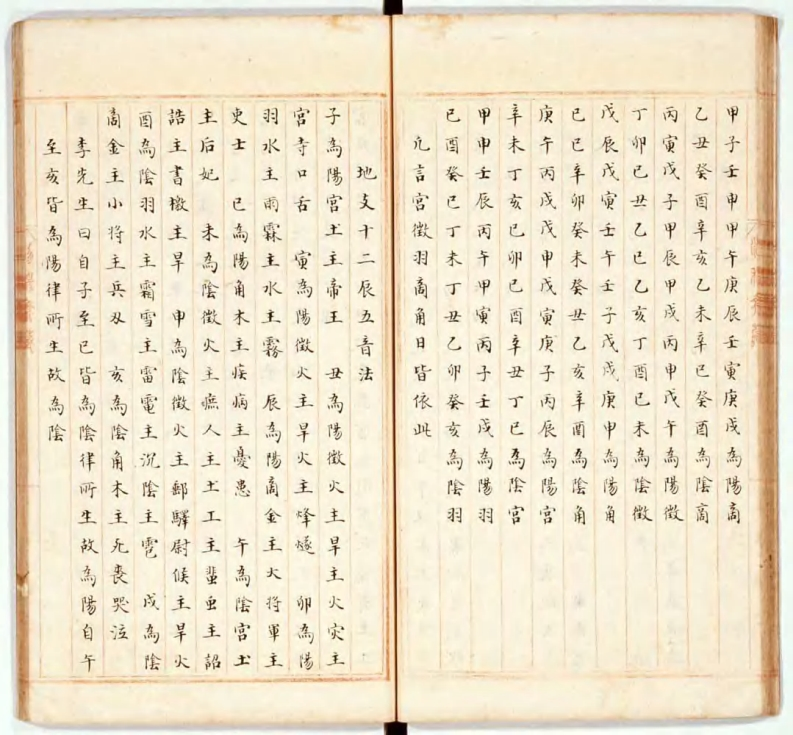 甲子壬申甲午庚辰壬寅庚戌為陽商
乙丑癸酉辛亥乙未辛巳癸酉為陰商
丙寅戊子甲辰甲戌丙申戊午為陽徵
丁卯己丑乙巳乙亥丁酉己未為陰徵
戊辰戊寅壬午壬子戊戌庚申為陽角
己巳辛卯癸未癸丑乙亥辛酉為陰角
庚午丙戌戊申戊寅庚子丙辰為陽宮
辛未丁亥己卯己酉辛丑丁巳為陰宮
甲申壬辰丙午甲寅丙子壬戌為陽羽
己酉癸巳丁未丁丑乙卯癸亥為陰羽
凢言宮徵羽商角日皆依此
地支十二辰五音法
子為陽宮土主帝王 丑為陽徵火主旱主火灾主
宮寺口舌 寅為陽徵火主旱火主烽燧 卯為陽
羽水主雨霖主水主霧 辰為陽商金主大將軍主
吏士 巳為陽角木主疾病主憂患 午為陰宮土
主后妃 未為陰徵火主庶人主土工主蜚虫主詔
誥主書檄主旱 申為陰徵火主郵驛尉候主旱火
酉為陰羽水主霜雪主雷電主沉陰主雹 戌為陰
商金主小將主兵刄 亥為陰角木主凢喪哭泣
李先生曰自子至巳皆為陰律所生故為陽自午
至亥皆為陽律所生故為陰